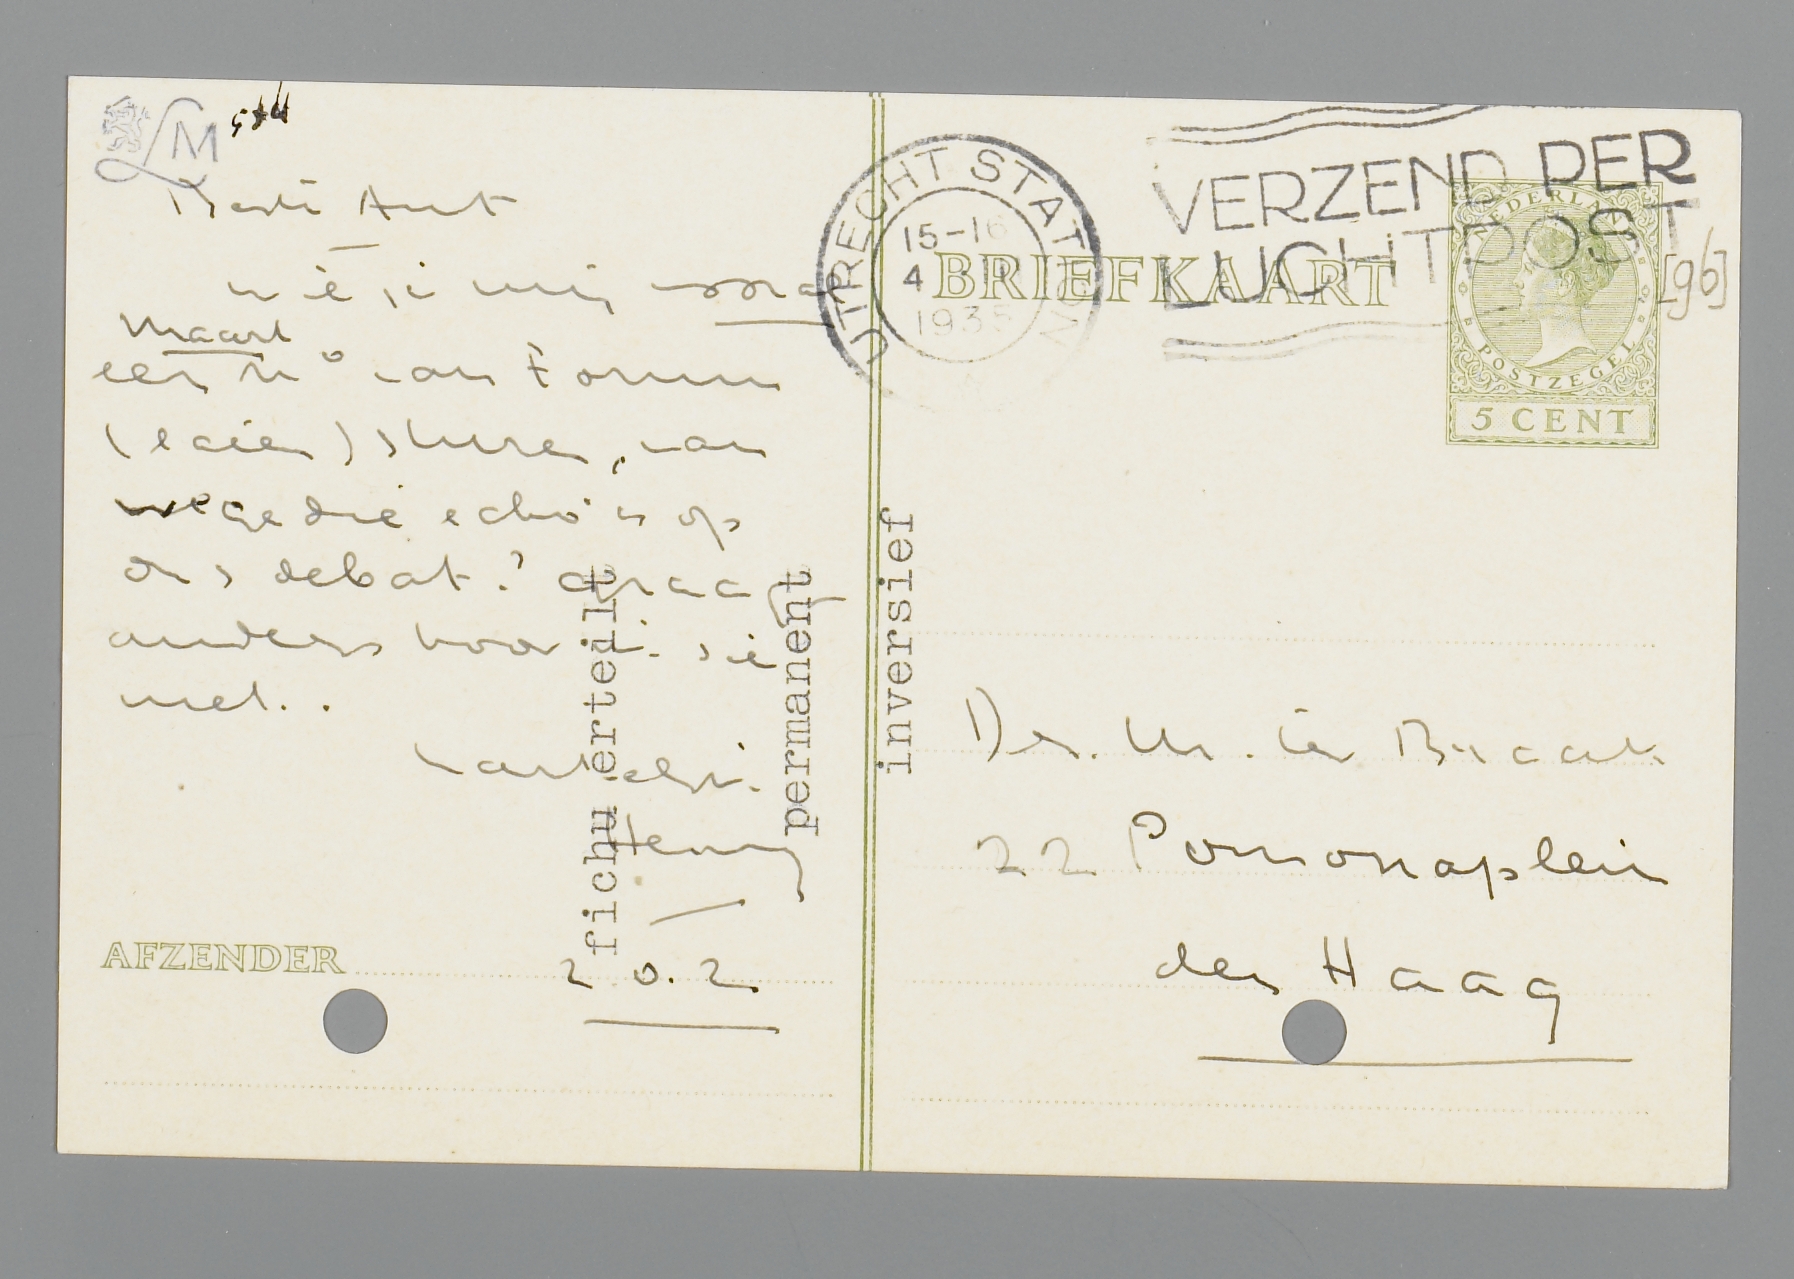 LM
Beste Ant
wil je mij vooral
maart
een n° van Forum
(laten) sturen, van
wege die echo's op
ons debat? Graag
anders koop ik zie
niet..
Hartelijk.
Henny
20.2.
AFZENDER
fichu erteilt
permanent
inversief
UTRECHT STATION
15-16
4 III
1935
VERZEND PER
LUCHTPOST
BRIEFKAART
NEDERLAND
POSTZEGEL
5 CENT
[96]
Dr. M. ter Braak
22 Pomonaplein
den Haag